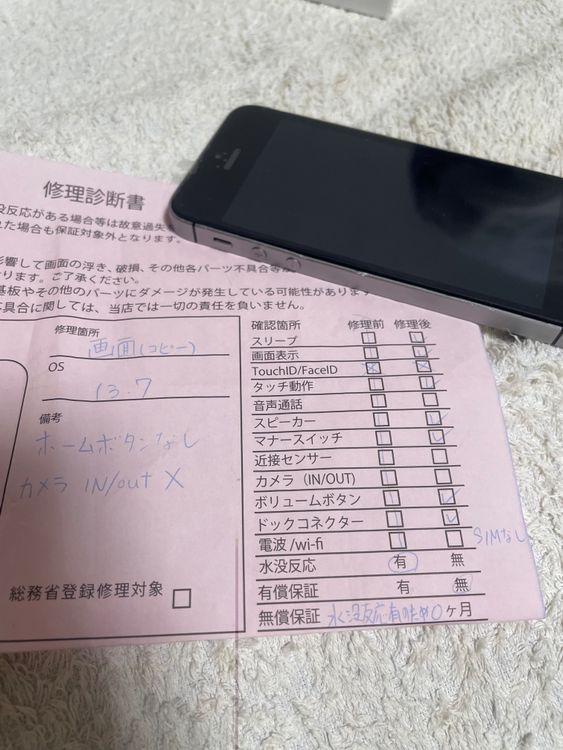 修理診断書
没反応がある場合等は故意過失
れた場合も保証対象外となります。
影響して画面の浮き、破損、その他各パーツ不具合等
ります。ご了承ください。
基板やその他のパーツにダメージが発生している可能性があります
具合に関しては、当店では一切の責任を負いません。
修理箇所
画面(コピー)
OS
13.7
備考
ホームボタンなし
カメラ IN/out X
総務省登録修理対象
確認箇所 修理前 修理後
スリープ
画面表示
TouchID/FaceID
タッチ動作
音声通話
スピーカー
マナースイッチ
近接センサー
カメラ (IN/OUT)
ボリュームボタン
ドックコネクター
電波/wi-fi SIMなし
水没反応 有 無
有償保証 有 無
無償保証 水没反応有のため0ヶ月